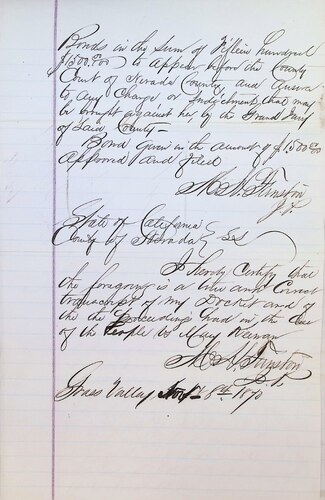 Bonds in the Sum of Fifteen hundred
$1500.00 to appear before the County
Court of Nevada County, and answer
to any Charge or Indictment that may
be brought against her by the Grand Jury
of Said County—
Bond given in the amount of $1500.00
approved and filed
J.P.
State of California
County of Nevada } SS
I hereby Certify that
the foregoing is a true and Correct
transcript of my Docket and of
the the Proceedings had in the Case
of the People vs Mary
J.P.
Grass Valley Nov 8th 1870